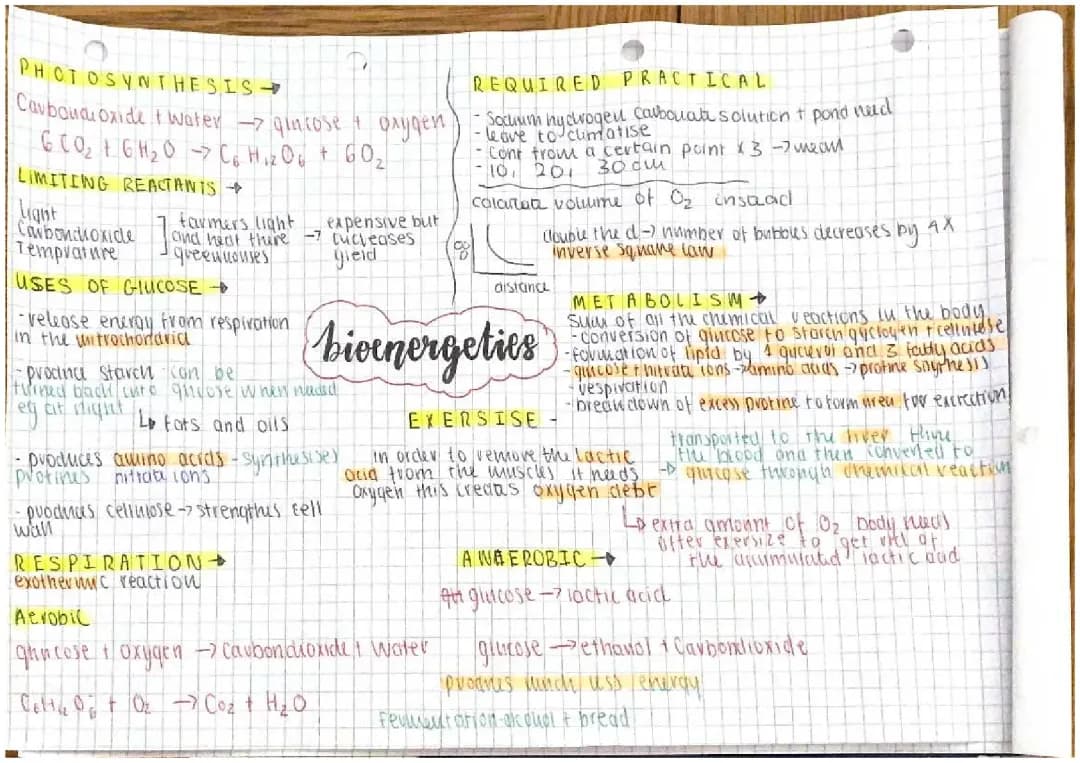 PHOTOSYNTHESIS →
Carbondioxide + water → glucose + oxygen
6CO₂ + 6H₂O → C₆H₁₂O₆ + 6O₂
LIMITING REACTANTS →
light
Carbondioxide
Temprature
farmers light
and heat there
greenhouses
→ expensive but
increases
yield
USES OF GLUCOSE →
- release energy from respiration
in the mitrochondria
- product starch - can be
turned back into glucose when needed
eg at night
↳ fats and oils
- produces amino acids - synthesises
protines nitrate ions
- produces cellulose → strengthes cell
wall
RESPIRATION →
exothermic reaction
Aerobic
glucose + oxygen → carbondioxide + water
C₆H₁₂O₆ + O₂ → CO₂ + H₂O
REQUIRED PRACTICAL
- Sodium hydrogen carbonate solution + pond weed
- leave to climatise
- Cont from a certain point x 3 → mean
- 10, 20, 30 cm
volume of O₂ instead
distance
double the d → number of bubbles decreases by 4x
inverse square law
bioenergetics
METABOLISM →
Sum of all the chemical reactions in the body
- conversion of glucose to starch glycogen + cellulose
- formation of lipid by 1 glycerol and 3 fatty acids
- glucose + nitrate ions → amino acids → protine
- respiration
- breakdown of excess protine to form urea for excretion
EXERSISE -
in order to remove the lactic
acid from the muscles it needs
oxygen this creates oxygen debt
transported to the liver
the blood and then converted to
→ glucose through chemical reaction
↳ extra amount of O₂ body needs
after exersize to get rid of
the accumulated lactic acid
ANAEROBIC →
glucose → lactic acid
glucose → ethanol + Carbondioxide
produces much less energy
Fermentation - alcohol + bread